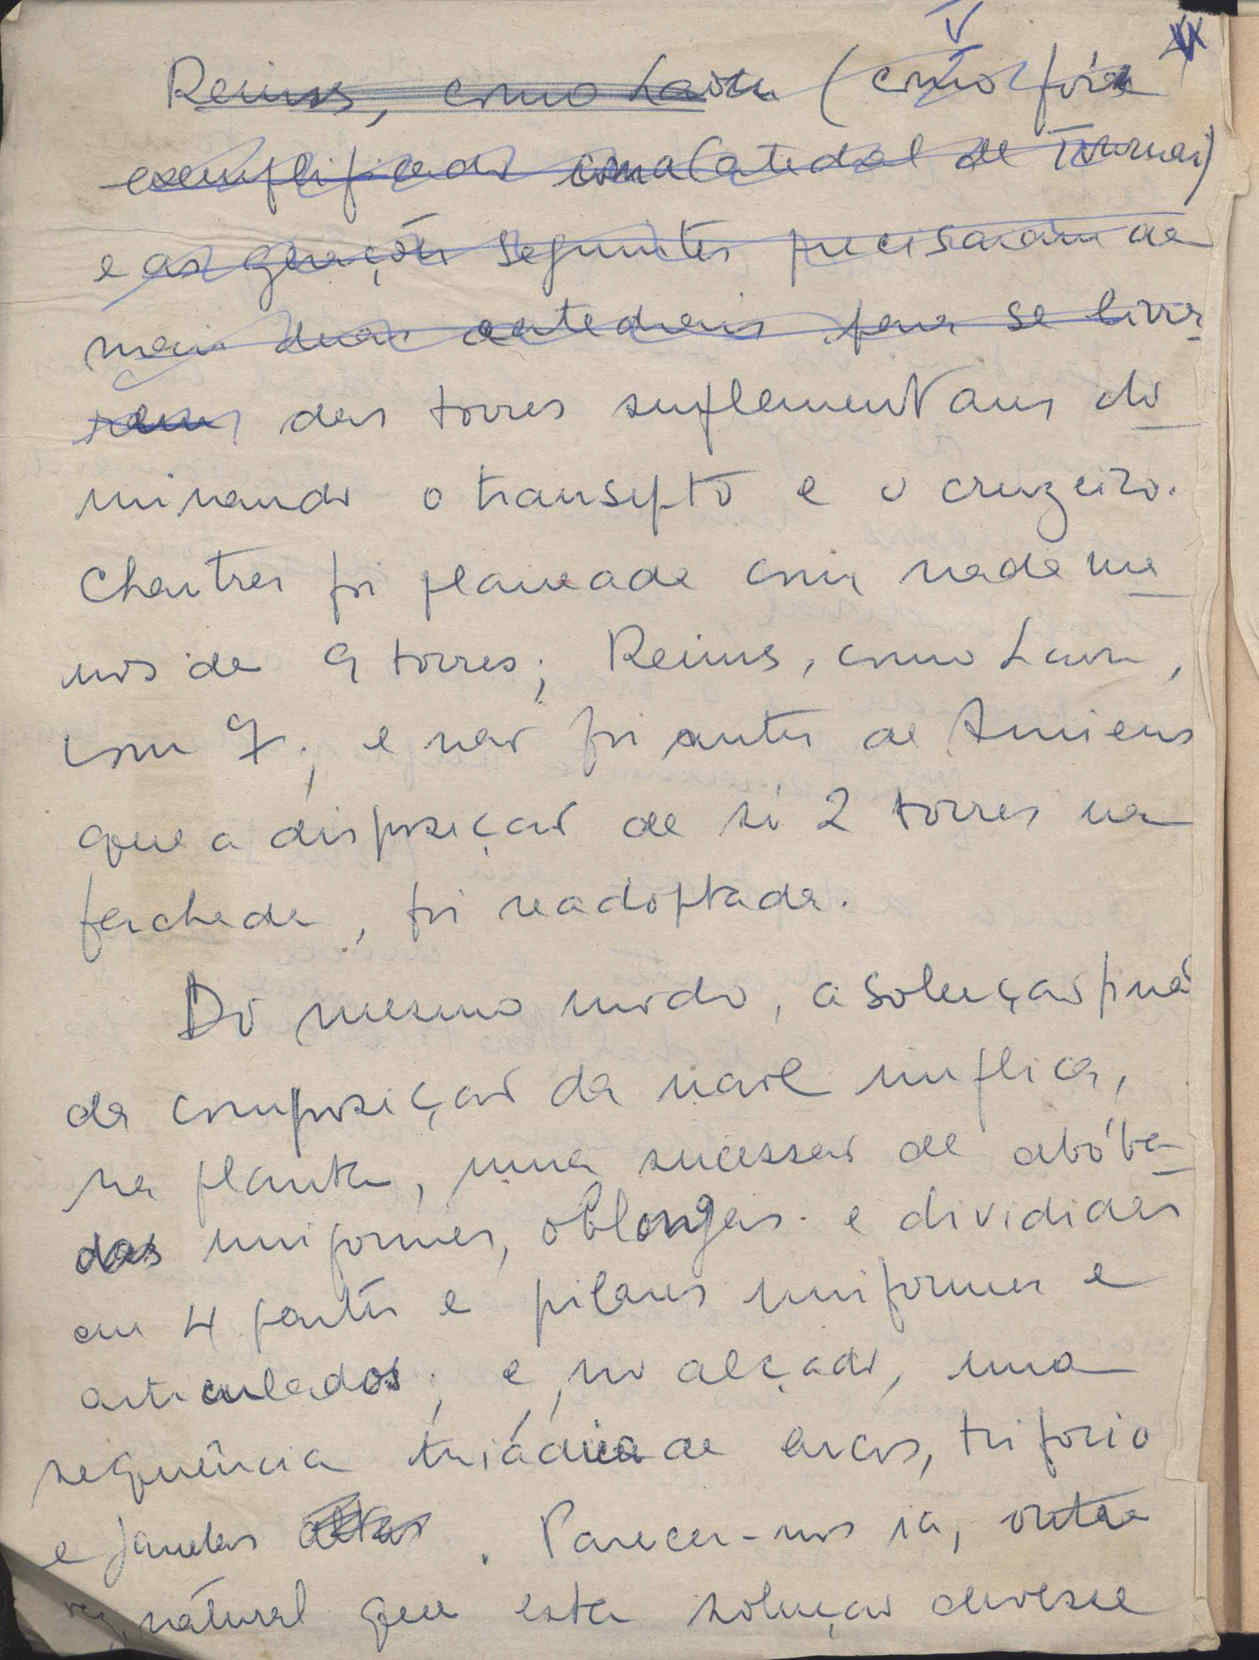 V
Reims, como Laon (como fora
exemplificado com a Catedral de Tournai)
e as gerações seguintes precisaram de
mais duas catedrais para se livra
rem das torres suplementares do
minando o transepto e o cruzeiro.
Chartres foi planeada com nada me
nos de 9 torres; Reims, como Laon,
com 7; e não foi antes de Amiens
que a disposição de só 2 torres na
fachada, foi readoptada.
Do mesmo modo, a solução final
da composição da nave implica,
na planta, uma sucessão de abóba
das uniformes, oblongas e divididas
em 4 partes e pilares uniformes e
articulados; e, no alçado, uma
sequência triádica de arcos, triforio
e janelas altas. Parecer-nos ia, outra
vez, natural que esta solução devesse